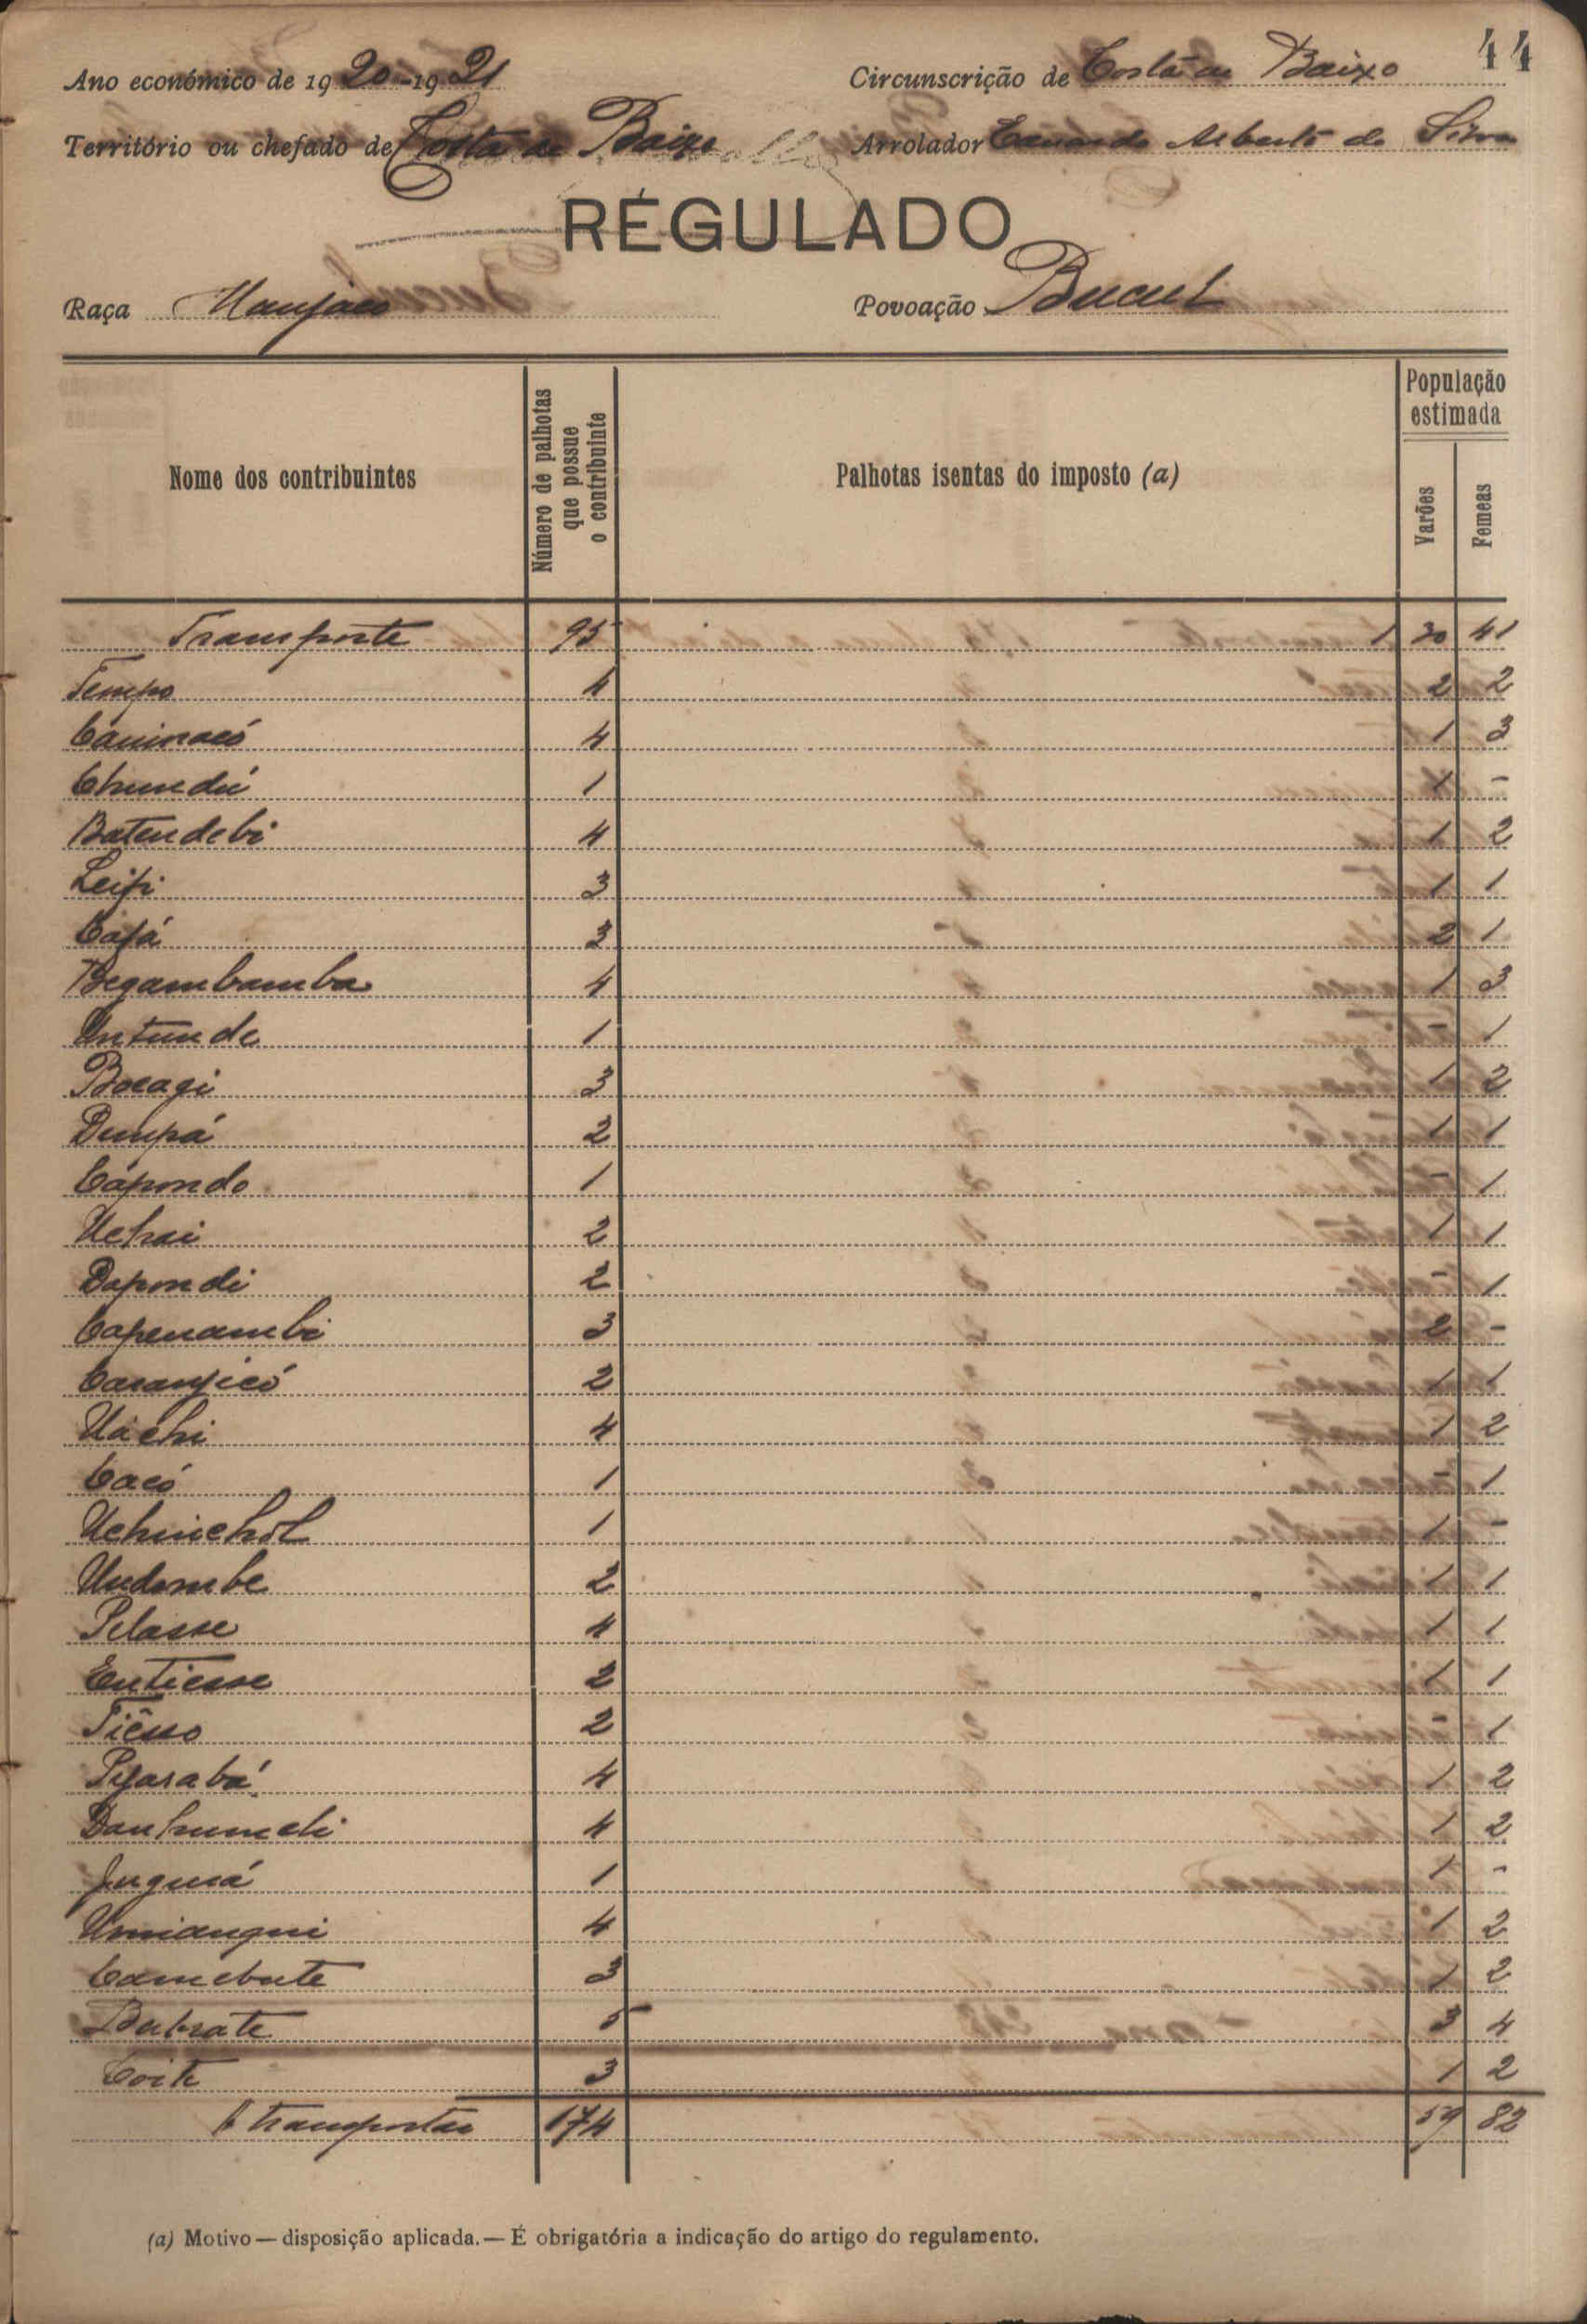 44
Ano económico de 1920-1921 Circunscrição de Costa de Baixo
Território ou chefado de Costa de Baixo Arrolador Eduardo Alberto da Silva
RÉGULADO
Raça Manjaco Povoação Bucul
Nome dos contribuintes Número de palhotas que possue o contribuinte Palhotas isentas do imposto (a) População estimada Varões Femeas
Transporte 95 1 30 41
Tempo 4 2 2
Caminacó 4 1 3
Chundú 1 1 -
Batendebi 4 1 2
Leifi 3 1 1
Cafá 3 2 1
Begambamba 4 1 3
Untunde 1 - 1
Bocagi 3 1 2
Dumpá 2 1 1
Capondo 1 - 1
Uchai 2 1 1
Dapondi 2 - 1
Capenambi 3 2 -
Caranjicó 2 1 1
Uachi 4 1 2
Cacó 1 - 1
Uchinchol 1 1 -
Undombe 2 1 1
Pelasse 4 1 1
Enticasse 2 1 1
Tiêsso 2 - 1
Pijarabá 4 1 2
Danhumeli 4 1 2
Juguiá 1 1 -
Umiangui 4 1 2
Camebute 3 1 2
Babrate 5 3 4
Coite 3 1 2
A transportar 174 59 82
(a) Motivo — disposição aplicada. — É obrigatória a indicação do artigo do regulamento.